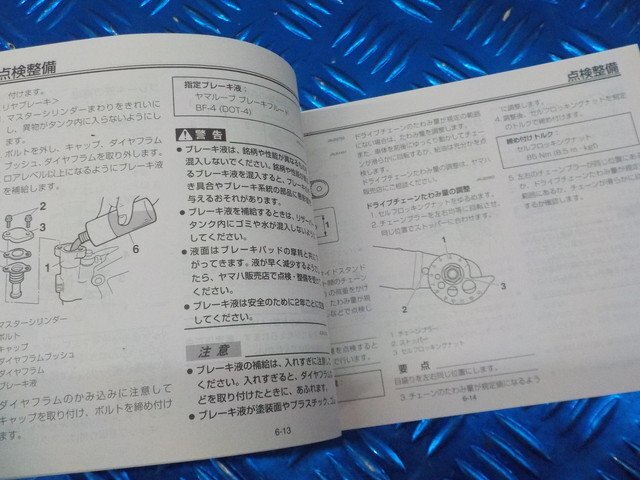 点検整備
付けます。
リヤブレーキ>
1. マスターシリンダーまわりをきれいに
し、異物がタンク内に入らないようにし
ます。
ボルトを外し、キャップ、ダイヤフラム
ブッシュ、ダイヤフラムを取り外します。
ロアレベル以上になるようにブレーキ液
を補給します。
2
3
1
1
6
マスターシリンダー
ボルト
キャップ
ダイヤフラムブッシュ
ダイヤフラム
ブレーキ液
ダイヤフラムのかみ込みに注意して
キャップを取り付け、ボルトを締め付け
ます。
指定ブレーキ液:
ヤマルーブ ブレーキフルード
BF-4 (DOT-4)
警告
● ブレーキ液は、銘柄や性能が異なるもの
混入しないでください。銘柄や性能が異
るブレーキ液を混入すると、ブレーキの
き具合やブレーキ系統の部品に悪影響
与えるおそれがあります。
● ブレーキ液を補給するときは、リザーバ
タンク内にゴミや水が混入しないよう
してください。
● 液面はブレーキパッドの摩耗と共に
がってきます。液が早く減少するよう
たら、ヤマハ販売店で点検・整備を受け
ください。
● ブレーキ液は安全のために2年ごとに
してください。
注意
● ブレーキ液の補給は、入れすぎに注意
ください。入れすぎると、ダイヤフラム
どを取り付けたときに、あふれます。
● ブレーキ液が塗装面やプラスチック、ゴム
6-13
点検整備
ドライブチェーンのたわみ量が規定の範囲
にない場合は、たわみ量を調整します。
また、車体を前後にゆっくり動かしてチェー
ンが滑らかに回転するか、給油は充分かを点
検します。
ドライブチェーンのたわみ量の調整は、ヤマハ
販売店にご相談ください。
ドライブチェーンたわみ量の調整
1. セルフロッキングナットをゆるめます。
2. チェーンプラーを左右均等に回転させ、
同じ位置でストッパーに合わせます。
1
2
3
1. チェーンプラー
2. ストッパー
3. セルフロッキングナット
要点
目盛りを左右同じ位置にします。
3. チェーンのたわみ量が規定値になるよう
に調整します。
4. 調整後、セルフロッキングナットを規定
のトルクで締め付けます。
締め付けトルク:
セルフロッキングナット:
85 Nm (8.5 m・kgf)
6-14